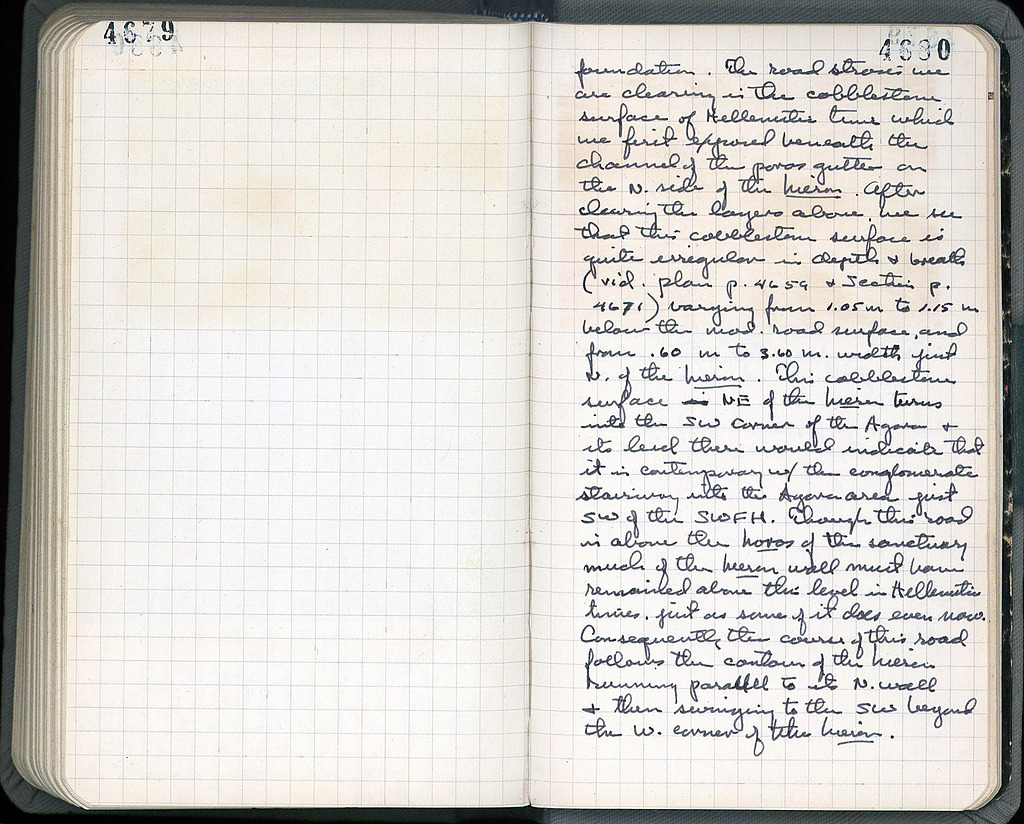 4679
4680
foundation. The road stroses we
are clearing is the cobblestone
surface of Hellenistic time which
we first exposed beneath the
channel of the poros gutter on
the N. side of the hieron. After
clearing the layers above, we see
that this cobblestone surface is
quite irregular in depth & breath
(vid. plan p. 4659 & Section p.
4671) varying from 1.05m to 1.15 m
below the mod. road surface, and
from .60 m to 3.60 m. width just
N. of the hieron. This cobblestone
surface NE of the hieron turns
into the SW corner of the Agora &
its level there would indicate that
it is contemporary w/ the conglomerate
stairway into the Agora area just
SW of the SWFH. Though this road
is above the horos of the sanctuary
much of the hieron wall must have
remained above this level in Hellenistic
times, just as some of it does even now.
Consequently the course of this road
follows the contour of the hieron
running parallel to its N. wall
& then swinging to the SW beyond
the W. corner of the hieron.